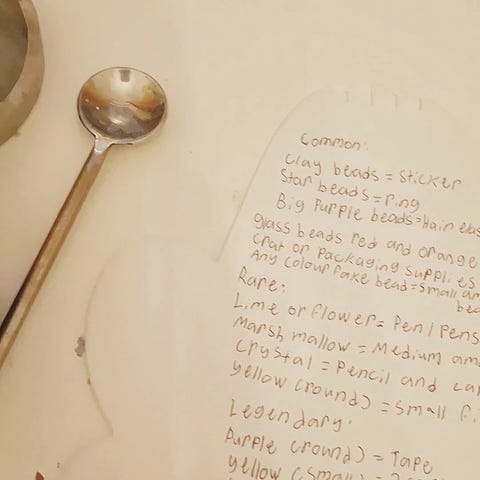 Common:
Clay beads = Sticker
Star beads = ring
Big Purple beads = Hair
glass beads red and orange
crat or Packaging supplies
Any colour fake bead = Small
Rare:
Lime or flower = Pen / Pens
Marsh mallow = Medium
crystal = Pencil and
yellow (round) = Small
Legendary:
Purple (round) = Tape
yellow (Small) =